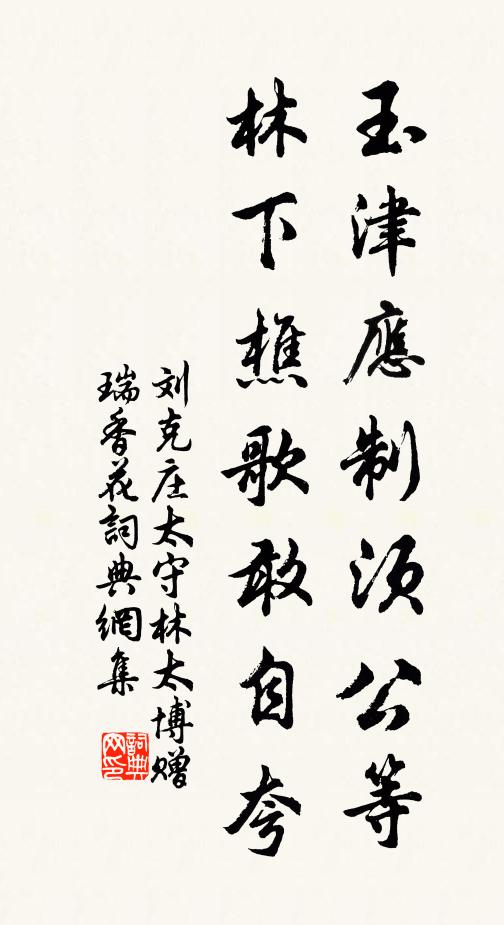 玉津應制須公等
林下樵歌敢自夸
刘克庄太守林太博赠
瑞香花詞典網集
詞典
网印